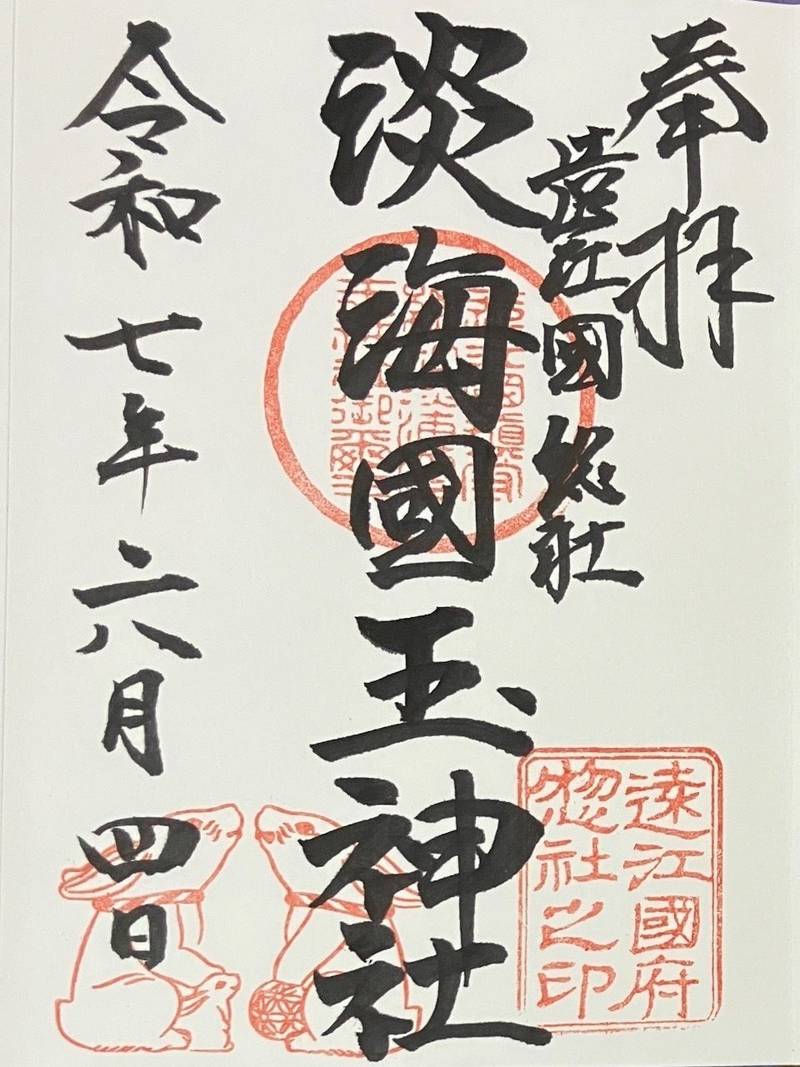 奉拝
遠江國総社
淡海國玉神社
令和七年六月四日
遠江國府
惣社之印